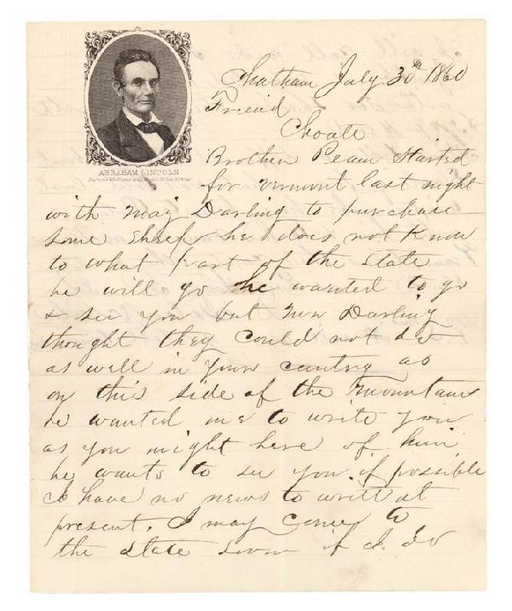 Chatham July 30th 1860
Friend
Choate
ABRAHAM LINCOLN
Brother Started
for vermont last night
with Maj Darling to purchase
some Sheep he does not know
to what part of the State
he will go he wanted to go
& see you but Darling
thought they could not do
as well in your country as
on this side of the mountain
he wanted me to write you
as you might here of him
he wants to see you if possible
I have no news to write at
present. I may come to
the State soon if I do